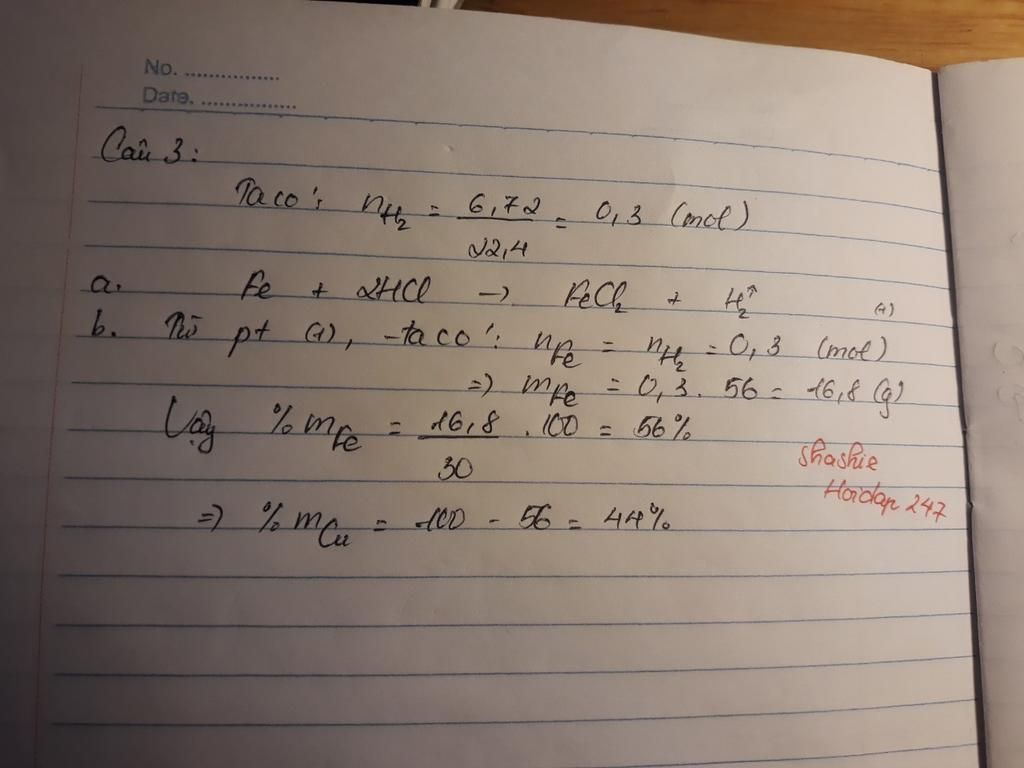 No. ................
Date. ................
Câu 3:
Ta có: n_H₂ = 6,72/22,4 = 0,3 (mol)
a. Fe + 2HCl → FeCl₂ + H₂↑ (1)
b. Từ pt (1), ta có: n_Fe = n_H₂ = 0,3 (mol)
=> m_Fe = 0,3 . 56 = 16,8 (g)
Vậy % m_Fe = 16,8/30 . 100 = 56%
shashie
Hoidap 247
=> % m_Cu = 100 - 56 = 44%